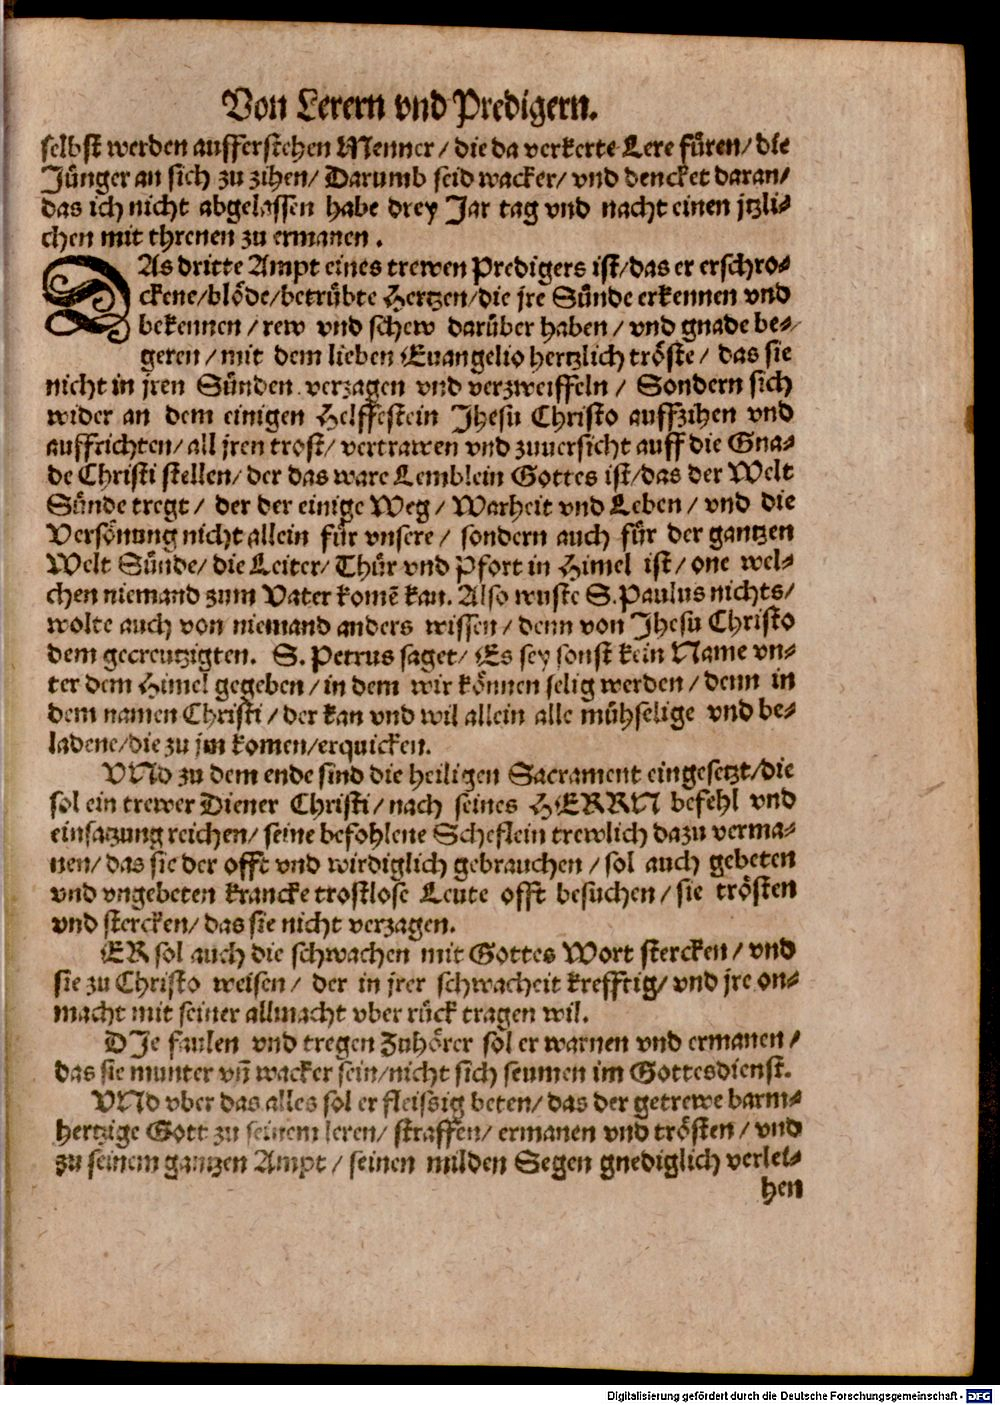 Von Lerern vnd Predigern.
selbst werden aufferstehen Menner / die da verkerte Lere füren / die
Jünger an sich zu zihen / Darumb seid wacker / vnd dencket daran /
das ich nicht abgelassen habe drey Jar tag vnd nacht einen jtzli-
chen mit threnen zu ermanen .
DAs dritte Ampt eines trewen Predigers ist / das er erschro-
ckene / blöde / betrübte Hertzen / die jre Sünde erkennen vnd
bekennen / rew vnd schew darüber haben / vnd gnade be-
geren / mit dem lieben Euangelio hertzlich tröste / das sie
nicht in jren Sünden verzagen vnd verzweiffeln / Sondern sich
wider an dem einigen Helffestein Jhesu Christo auffzihen vnd
auffrichten / all jren trost / vertrawen vnd zuuersicht auff die Gna-
de Christi stellen / der das ware Lemblein Gottes ist / das der Welt
Sünde tregt / der der einige Weg / Warheit vnd Leben / vnd die
Versönung nicht allein für vnsere / sondern auch für der gantzen
Welt Sünde / die Leiter / Thür vnd Pfort in Himel ist / one wel-
chen niemand zum Vater komē kan. Also wuste S. Paulus nichts /
wolte auch von niemand anders wissen / denn von Jhesu Christo
dem gecreutzigten. S. Petrus saget / Es sey sonst kein Name vn-
ter dem Himel gegeben / in dem wir können selig werden / denn in
dem namen Christi / der kan vnd wil allein alle mühselige vnd be-
ladene / die zu jm komen / erquicken.
VNd zu dem ende sind die heiligen Sacrament eingesetzt / die
sol ein trewer Diener Christi / nach seines HERRN befehl vnd
einsatzung reichen / seine befohlene Scheflein trewlich dazu verma-
nen / das sie der offt vnd wirdiglich gebrauchen / sol auch gebeten
vnd vngebeten krancke trostlose Leute offt besuchen / sie trösten
vnd stercken / das sie nicht verzagen.
ER sol auch die schwachen mit Gottes Wort stercken / vnd
sie zu Christo weisen / der in jrer schwacheit krefftig / vnd jre on-
macht mit seiner allmacht vber rück tragen wil.
DJe faulen vnd tregen Zuhörer sol er warnen vnd ermanen /
das sie munter vñ wacker sein / nicht sich seumen im Gottesdienst.
VNd vber das alles sol er fleissig beten / das der getrewe barm-
hertzige Gott zu seinem leren / straffen / ermanen vnd trösten / vnd
zu seinem gantzen Ampt / seinen milden Segen gnediglich verlei-
hen
Digitalisierung gefördert durch die Deutsche Forschungsgemeinschaft - DFG